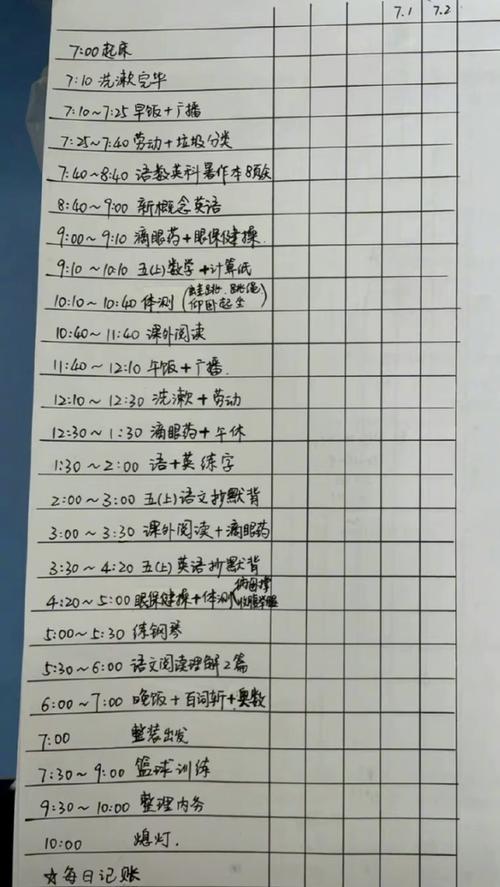 7.1 7.2
7:00起床
7:10 洗漱完毕
7:10~7:25 早饭+广播
7:25~7:40 劳动+垃圾分类
7:40~8:40 语数英科暑作本8页
8:40~9:00 新概念英语
9:00~9:10 滴眼药+眼保健操.
9:10~10:10 五(上)数学+计算纸
10:10~10:40 体测(蛙跳.跳绳 仰卧起坐)
10:40~11:40 课外阅读
11:40~12:10 午饭+广播.
12:10~12:30 洗漱+劳动
12:30~1:30 滴眼药+午休
1:30~2:00 语+英练字
2:00~3:00 五(上)语文抄默背
3:00~3:30 课外阅读+滴眼药
3:30~4:20 五(上)英语抄默背
4:20~5:00 眼保健操+体测
5:00~5:30 练钢琴
5:30~6:00 语文阅读理解2篇
6:00~7:00 晚饭+百词斩+奥数
7:00 整装出发
7:30~9:00 篮球训练
9:30~10:00 整理内务
10:00 熄灯.
☆每日记账